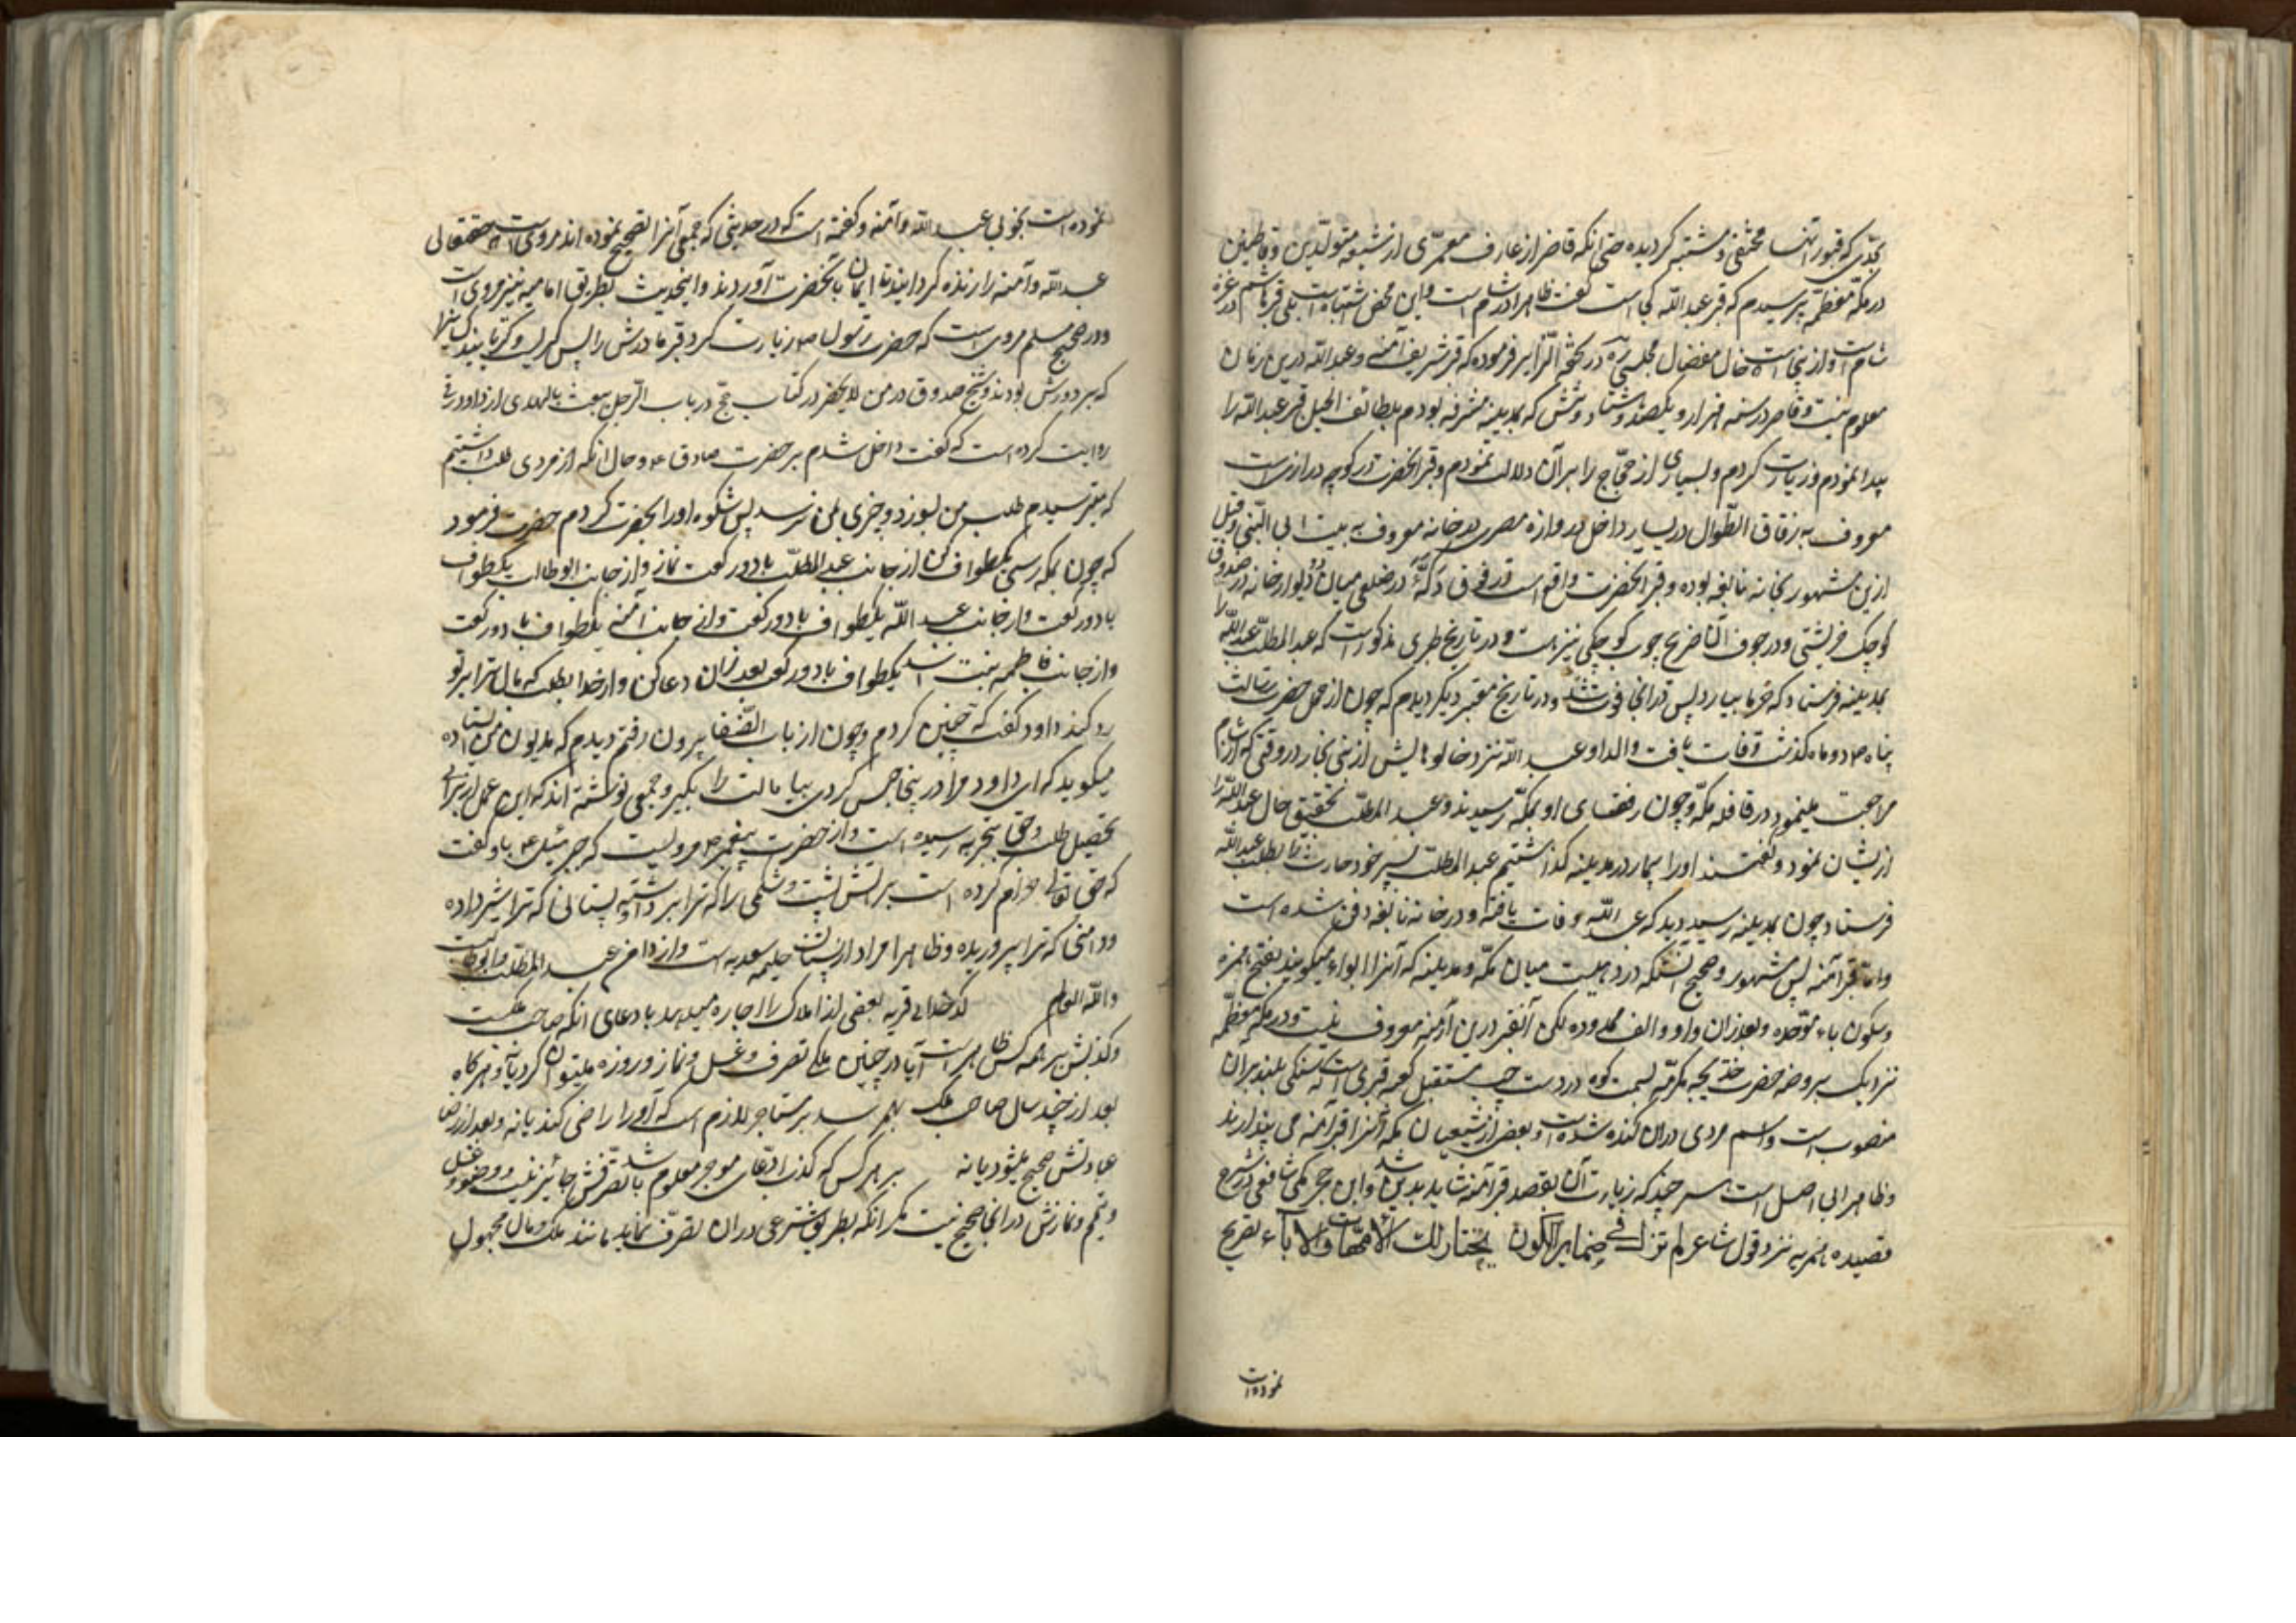 بحدّی که قبور آنها مختفی و مشتبه گردیده حتی آنکه قاصر از عارف معمّری از شیعه متولّدین و قاطنین
در مکّه معظّمه پرسیدم که قبر عبد الله کجا است گفت ظاهرا در شام است و این محض اشتباه است بلی قبر هاشم در غزه
شام است و از اینجا است خال مفضال مجلسی ره در تحفة الزائر فرموده که قبر شریف آمنه و عبد الله درین زمان
معلوم نیست و قاصر در سنه هزار و یکصد و هشتاد و شش که بمدینه مشرفه بودم بلطائف الحیل قبر عبد الله را
پیدا نمودم و زیارت کردم و بسیاری از حجّاج را بر آن دلالت نمودم و قبر آنحضرت در کوچه درازی است
معروف به زقاق الطّوال در یسار داخل دروازه مصری در خانه معروف به بیت ابی النّبی و قبل
ازین مشهور بخانه نابغه بوده و قبر آنحضرت واقع است در فوق دکّهٔ در ضلعی میان دو دیوار خانه در صندوق
کوچک و در جوف آن ضریح چوب کوچکی نیز هست و در تاریخ طبری مذکور است که عبد المطلّب عبد الله را
بمدینه فرستاد که خرما بیارد پس در آنجا فوت شد و در تاریخ معتبر دیگر دیدم که چون از حمل حضرت رسالت
پناه ص دو ماه گذشت وفات یافت والد او عبد الله نزد خالوهایش از بنی نجار در وقتی که از شام
مراجعت مینمود در قافله مکّه و چون رفقای او بمکّه رسیدند و عبد المطلّب تحقیق حال عبد الله را
ازیشان نمود و گفتند او را بیمار در مدینه گذاشتیم عبد المطلّب پسر خود حارث را بطلب عبد الله
فرستاد چون بمدینه رسید دید که عبد الله وفات یافته و در خانه نابغه دفن شده است
و امّا قبر آمنه پس مشهور و صحیح آنستکه در دهیست میان مکّه و مدینه که آنرا ابواء میگویند بفتح همزه
و سکون باء موّحده و بعد از آن واو و الف ممدوده لکن آنقبر درین ازمنه معروف نیست و در مکه معظّمه
نزدیک بروضه حضرت خدیجه مکرمّه بسمت کوه در دست چپ مستقبل کعبه قبری است که سنگی بلند بر آن
منصوب است و اسم مردی در آن کنده شده است و بعض از شیعیان مکه آنرا قبر آمنه می پندارند
و ظاهرا بی اصل است هر چند که زیارت آن بقصد قبر آمنه شاید بد نباشد و ابن حجر مکی شافعی در شرح
قصیده همزیه نزد قول شاعر لم تزل فی ضمایر الکون تختار لک الامّهات و الآباء تصریح
نموده است
نموده است بخوبی عبد الله و آمنه و گفته است که در حدیثی که جمعی آنرا تصحیح نموده اند مروی است که حقتعالی
عبد الله و آمنه را زنده گردانید تا ایمان بآنحضرت آوردند و اینحدیث بطریق امامیه نیز مروی است
و در صحیح مسلم مروی است که حضرت رسول ص زیارت کرد قبر مادرش را پس گریست و گریانید کسانیرا
که بر دورش بودند و شیخ صدوق در من لا یحضر در کتاب حج در باب الرّجل یبعث بالهدی از داود رقی
روایت کرده است که گفت داخل شدم بر حضرت صادق ع و حال آنکه از مردی طلب داشتیم
که میترسیدم طلب من بسوزد و چیزی بمن نرسد پس شکوه او را بحضرت کردم حضرت فرمود
که چون بمکه رسی یکطواف کن از جانب عبد المطلّب با دو رکعت نماز و از جانب ابو طالب یکطواف
با دو رکعت و از جانب عبد الله یکطواف با دو رکعت و از جانب آمنه یکطواف با دو رکعت
و از جانب فاطمه بنت اسد یکطواف با دو رکعت بعد از آن دعا کن و از خدا بطلب که مال ترا بر تو
رد کند داود گفت که چنین کردم و چون از باب الصّفا بیرون رفتم دیدم که مدیون من ایستاده
میگوید که ای داود مرا در اینجا حبس کردی بیا مالت را بگیر و جمعی نوشته اند که این عمل از برای
تحصیل طلب و حق بتجربه رسیده است و از حضرت پیغمبر ص مرویست که جبرئیل ع باو گفت
که حق تعالی حرام کرده است بر آتش پشت و شکمی را که ترا برداشته و پستانی که ترا شیر داده
و دامنی که ترا پروریده و ظاهرا مراد از پستان حلیمه سعدیه است و از دامن عبد المطلّب و ابو طالب
و الله العالم کدخدای قریه بعضی از املاک را اجاره میدهد بادعای آنکه صاحب ملکست
و کذبش بر همه کس ظاهر است آیا در چنین ملکی تصرف و غسل و نماز و روزه میتوان کرد یا نه و هرگاه
بعد از چند سال صاحب ملک بهم رسد بر مستاجر لازم است که او را راضی کند یا نه و بعد از رضا
عباداتش صحیح میشود یا نه بر هر کس که کذب ادّعای موجر معلوم باشد تصرّفش جائز نیست و وضو و غسل
و تیمم و نمازش در آنجا صحیح نیست مگر آنکه بطریق شرعی در آن تصرّف نماید مانند ملک و مال مجهول